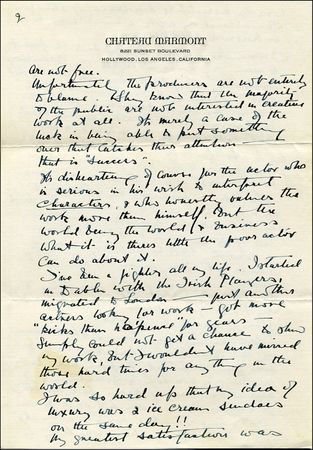 2
CHATEAU MARMONT
8221 SUNSET BOULEVARD
HOLLYWOOD, LOS ANGELES, CALIFORNIA
are not free.
Unfortunately the producers are not entirely
to blame. They know that the majority
of the public are not interested in creative
work at all. Its merely a case of the
luck in being able to put something
over that catches their attention —
that is "success".
Its disheartening of course for the actor who
is serious in his wish to interpret
characters, & who honestly values the
work more than himself. But the
world being the world & business
what it is theres little the poor actor
can do about it.
I've been a fighter all my life. I started
in Dublin with the Irish Players
migrated to London — just another
actress looking for work — got more
"kicks than ha'pence" for years —
Simply could not get a chance to show
my work. But I wouldn't have missed
those hard times for anything in the
world.
I was so hard up that my idea of
luxury was 2 ice cream sundaes
on the same day!!
My greatest satisfaction was